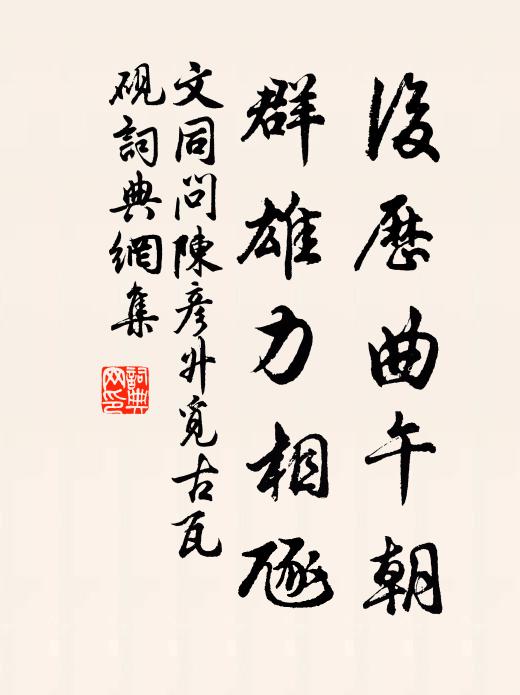 後歷曲午朝
群雄力相豗
文同問陳彥升覓古瓦
硯詞典網集
詞典
网印